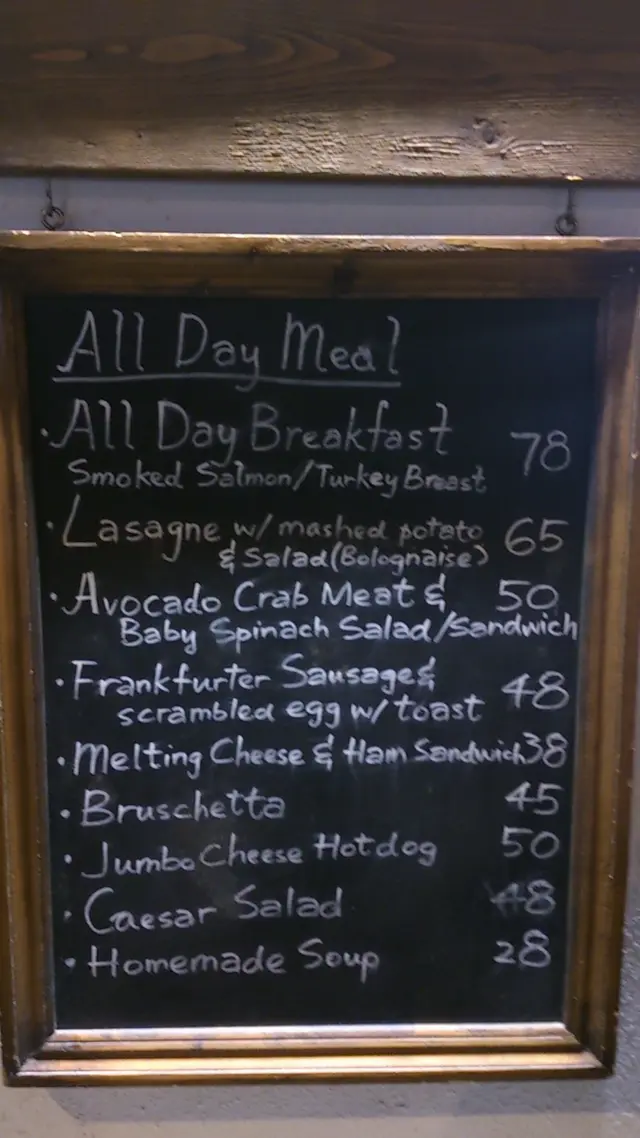 All Day Meal
· All Day Breakfast 78
Smoked Salmon/Turkey Breast
· Lasagne w/ mashed potato 65
& Salad (Bolognaise)
· Avocado Crab Meat & 50
Baby Spinach Salad/Sandwich
· Frankfurter Sausage & 48
scrambled egg w/ toast
· Melting Cheese & Ham Sandwich 38
· Bruschetta 45
· Jumbo Cheese Hotdog 50
· Caesar Salad 48
· Homemade Soup 28